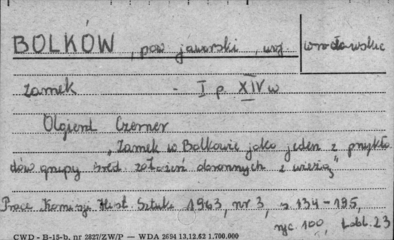 BOLKÓW, pow jaworski, woj. wrocławskie
zamek - I p. XIV w
Olgierd Czerner
"Zamek w Bolkowie jako jeden z przykła-
dów grupy śred. założeń obronnych z wieżą"
Prace Komisji Hist. Sztuki 1963, nr 3, s. 134-195,
ryc. 100, tabl. 23
CWD - B-15-b, nr 2827/ZW/P — WDA 2694 13.12.62 1.700.000